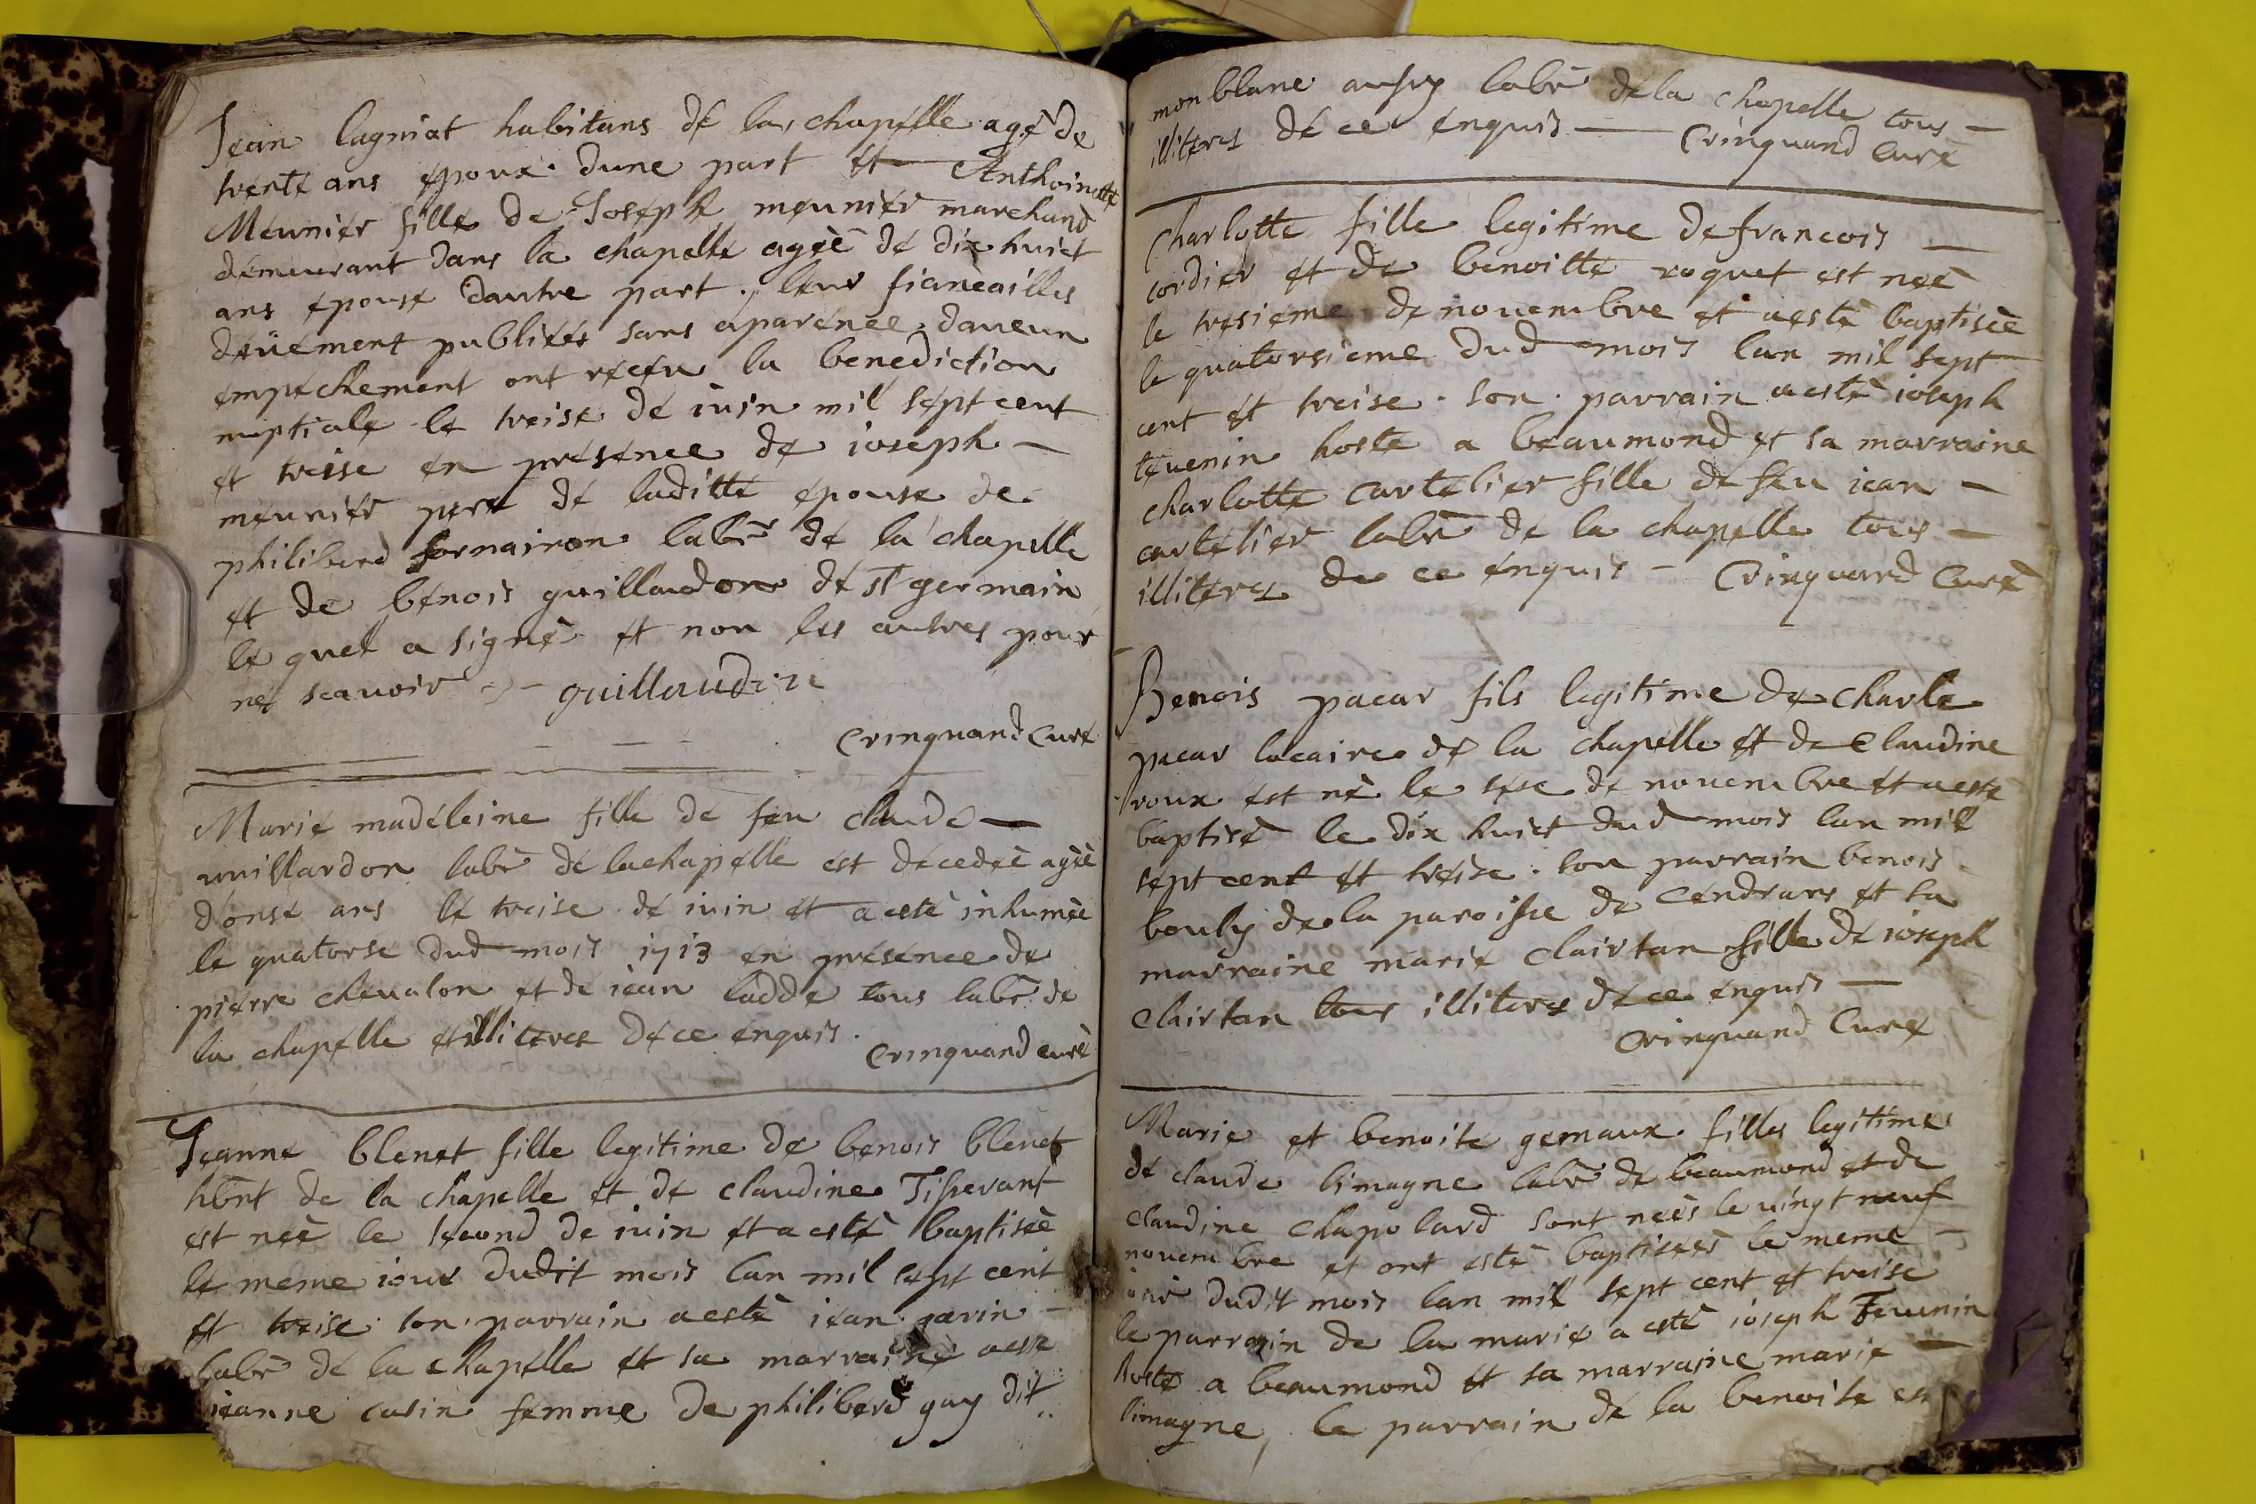 Jean lagniat habitans dé la chapélle agè de
trente ans époux dune part et Anthoinette
Meunier fille de Joseph meunier marchand
démeurant dans la chapelle ageè dé dix huict
ans épouse dautre part. leur fiancailles
deüement publiées sans aparénce daucun
émpéchement ont récéu la benediction
nuptiale le treise dé iuin mil sépt cent
et treise en présénce de ioseph —
meunier pere dé laditté épouse de
philiberd fornairon labr dé la chapelle
et de bénois guillaudon dé st germain
lé quel a signé et non les autres pour
né scavoir — guillaudon
Crinquand Curé
Marie madéleine fille dé feu claude —
uuillardon labr dé lachapélle est décedeè ageè
donse ans lé treise dé iuin et a esté inhumèe
lé quatorse dud mois 1713 en présénce de
pierre chéualon et dé iean ladde tous labr de
la chapélle et illiteres dé ce enquis.
Crinquand curè
Jeanne blenet fille legitime de benois blenet
hbnt de la chapélle et dé claudine Tisserant
est neè le second de iuin et a esté baptisèe
lé meme iour dudit mois lan mil sept cent
et treise son parrain a estè iean garin —
labr dé la chapélle et sa marraine a este
ieanne cusin femme de philiberd guy dit
monblanc aussy labr déla chapelle tous —
illiteres dé ce énquis — Crinquand Curé
Charlotte fille legitime de francois —
cordier et de benoitte roquet est neè
le tresieme de nouembre et a esté baptiseè
le quatorsieme dud mois lan mil sept
cent et treise. son parrain a estè ioseph
téuenin hoste a beaumond et sa marraine
charlotte Cartélier fille dé feu iean —
cartélier labr dé la chapelle tous —
illiteres de ce énquis — Crinquand Curé
Benois pacar fils legitime de charle
pacar locaire dé la chapélle et de Claudine
roux ést nè le sese dé nouembre et a esté
baptisé le dix huict dud mois lan mil
sépt cent et tréise. son parrain benois
bouly de la paroisse de Cendrans et sa
marraine marie Clairtan fille dé ioseph
Clairtan tous illiteres dé ce enquis —
Crinquand Curé
Marie et benoite gemaux filles legitime
dé claude limagne labr de beaumond et de
claudine chapolard sont neès le uingt neuf
nouembre et ont esté baptiseès le meme —
iour dudit mois lan mil sept cent et treise
le parrain de la marie a esté ioseph Teuenin
hoste a beaumond et sa marraine marie —
limagne, le parrain dé la benoite